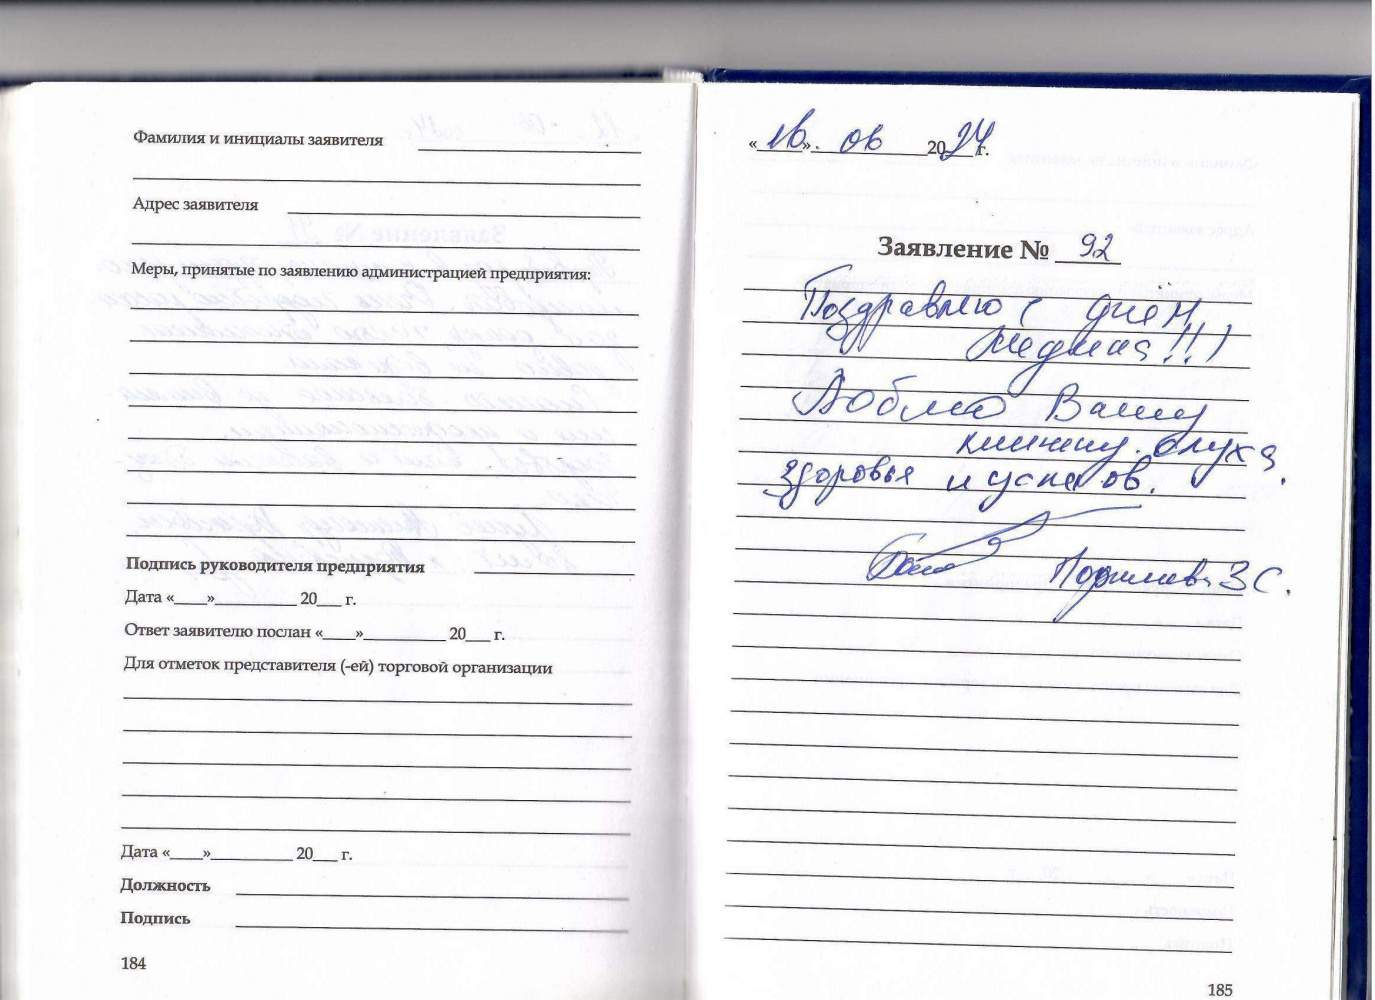 Фамилия и инициалы заявителя
Адрес заявителя
Меры, принятые по заявлению администрацией предприятия:
Подпись руководителя предприятия
Дата «____»__________ 20___ г.
Ответ заявителю послан «____»__________ 20___ г.
Для отметок представителя (-ей) торговой организации
Дата «____»__________ 20___ г.
Должность
Подпись
184
« » 06 2024 г.
Заявление № 92
Поздравляю с днём
медика!!!
Люблю Вашу
клинику. слуха.
здоровья и успехов.
З С.
185